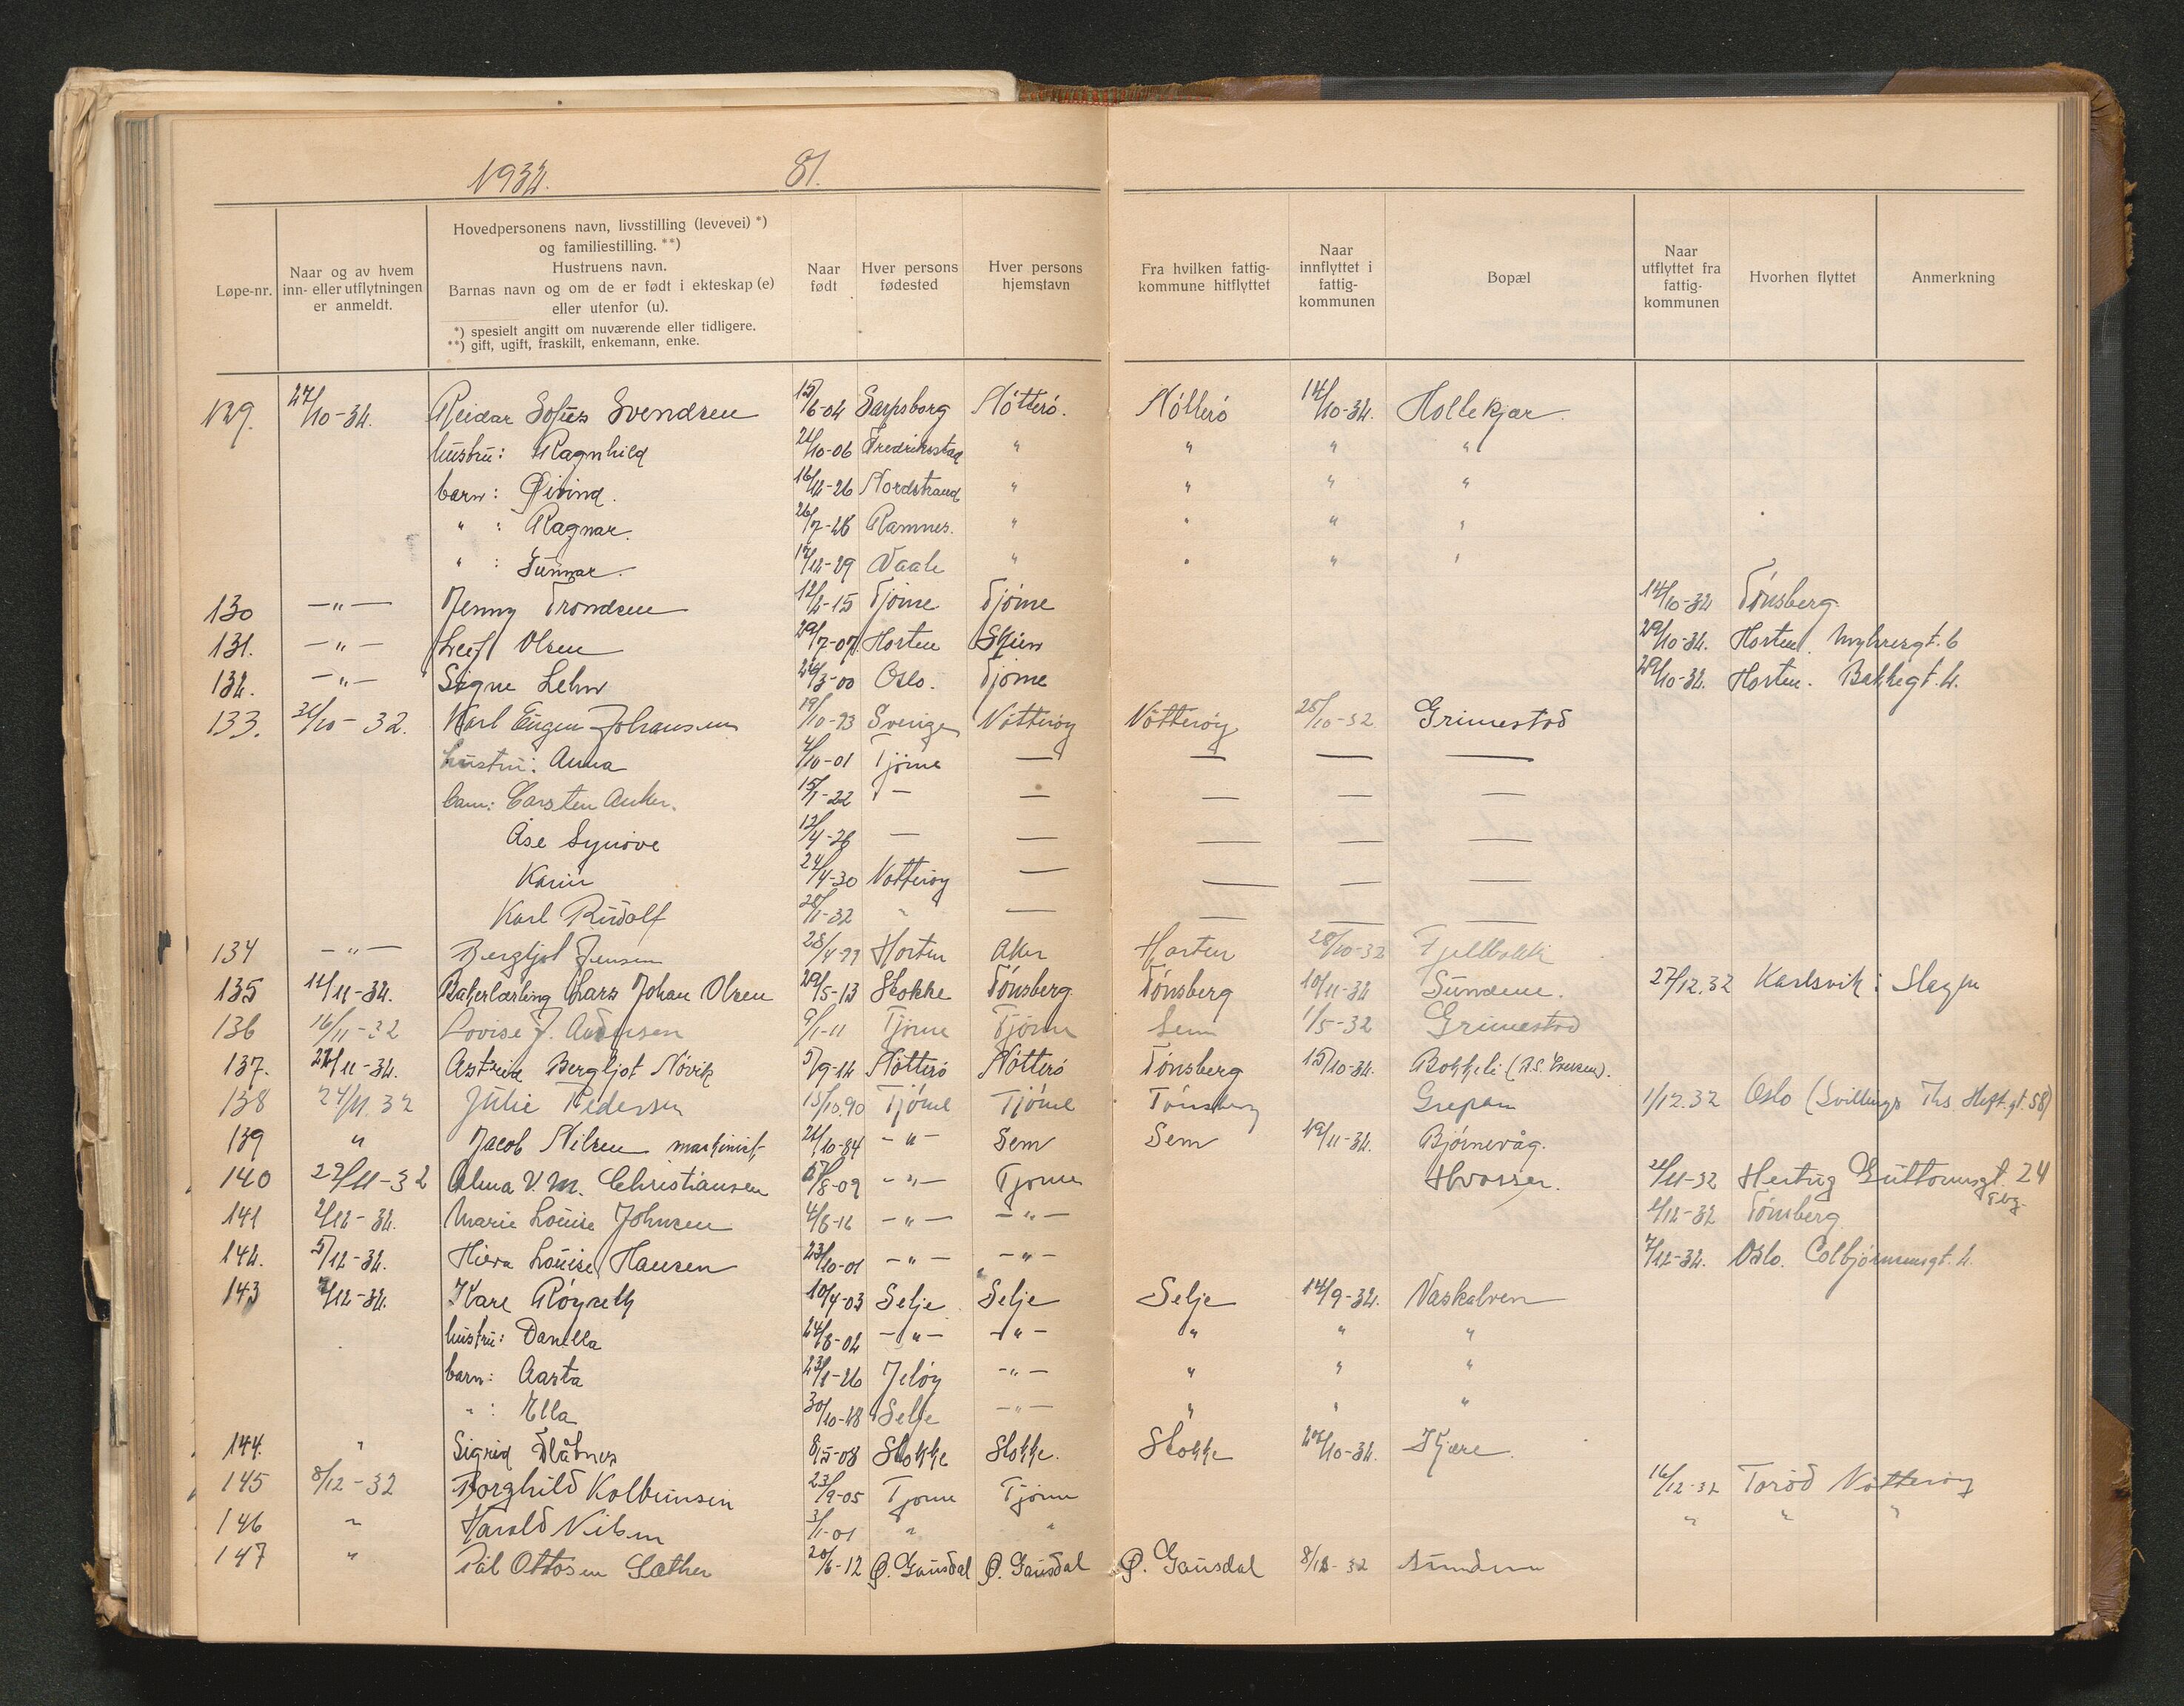 1932. 81.
Løpe-nr. Naar og av hvem inn- eller utflytningen er anmeldt. Hovedpersonens navn, livsstilling (levevei) *) og familiestilling. **) Hustruens navn. Barnas navn og om de er født i ekteskap (e) eller utenfor (u). *) spesielt angitt om nuværende eller tidligere. **) gift, ugift, fraskilt, enkemann, enke. Naar født Hver persons fødested Hver persons hjemstavn Fra hvilken fattigkommune hitflyttet Naar innflyttet i fattigkommunen Bopæl Naar utflyttet fra fattigkommunen Hvorhen flyttet Anmerkning
129. 27/10-32. Reidar Sofus Svendsen 15/6-02 Sarpsborg Nötterö. Nötterö 14/10-32. Hollekjær.
hustru: Ragnhild 21/10-06 Fredriksstad " " " "
barn: Øivind. 16/12-26 Nordstrand " " " "
" : Ragnar. 26/7-28 Ramnes. " " " "
" : Gunnar. 17/12-29 Vaale " " " "
130 —"— Jenny Trondsen 12/2-15 Tjöme Tjöme 14/10-32 Tönsberg.
131. —"— Leif Olsen 29/7-07 Horten Skien 29/10-32. Horten.
132. —"— Signe Lehn 24/3-00 Oslo. Tjöme 29/10-32. Horten. Bakkegt. 2.
133. 31/10-32. Karl Eugen Johansen 19/10-93 Sverige Nötteröy Nötteröy 25/10-32 Grimestad
hustru: Anna 4/10-01 Tjöme — — — —
barn: Carsten Anker. 15/1-22 — — — — —
Åse Synöve 12/4-28 — — — — —
Karin 24/4-30 Nötteröy — — — —
Karl Rudolf 28/1-32 " — — — —
134 —"— Bergljot Jensen 28/4-99 Horten Aker Horten 28/10-32 Fjellbakk
135 11/11-32. Bakerlærling Lars Johan Olsen 29/5-13 Stokke Tönsberg. Tönsberg 10/11-32 Sundene. 27/12.32 Karlsvik i Slagn
136 16/11-32 Lovise J. Andersen 9/1-11 Tjöme Tjöme Sem 1/5-32 Grimestad
137. 22/11-32. Astrid Bergljot Növik 5/9-12 Nötterö Nötterö Tönsberg 15/10-32. Bakkeli
138 24/11.32 Julie Pedersen 15/10.90 Tjöme Tjöme Tönsberg Grepan 1/12.32 Oslo (Svillings Ths. Heft. gt. 58)
139 " Jacob Nilsen maskinist 21/10-84 —"— Sem Sem 19/11-32. Bjørnevåg.
140 29/11-32 Alma V. M. Christiansen 5/8-09 —"— Tjöme Hvasser. 2/11-32 Hertug Guttormsgt. 24 Tbg.
141 2/12-32. Marie Louise Johnsen 4/8-16 —"— —"— 2/12-32 Tönsberg
142. 5/12-32. Louise Hansen 23/10-01 —"— —"— 7/12-32. Oslo. Colbjörnsensgt. 2.
143 7/12-32. Kåre Röyseth 10/4-03 Selje Selje Selje 14/9-32. Vaskalven
hustru: Danella 24/8-02 —"— —"— " " "
barn: Aasta 23/1-26 Jelöy —"— " " "
" : Ella 30/10-28 Selje —"— " " "
144. " Sigrid Flåtnes 8/5-08 Stokke Stokke. Stokke 27/10-32. Kjære.
145 8/12-32 Borghild Kolbeinsen 23/9-05 Tjöme Tjöme 16/12-32 Toröd Nötteröy
146 " Harald Nilsen 3/1-01 " " " " "
147 " Pål Ottosen Sæther 20/6-12 Ø. Gausdal Ø. Gausdal Ø. Gausdal 8/12-32 Sundene